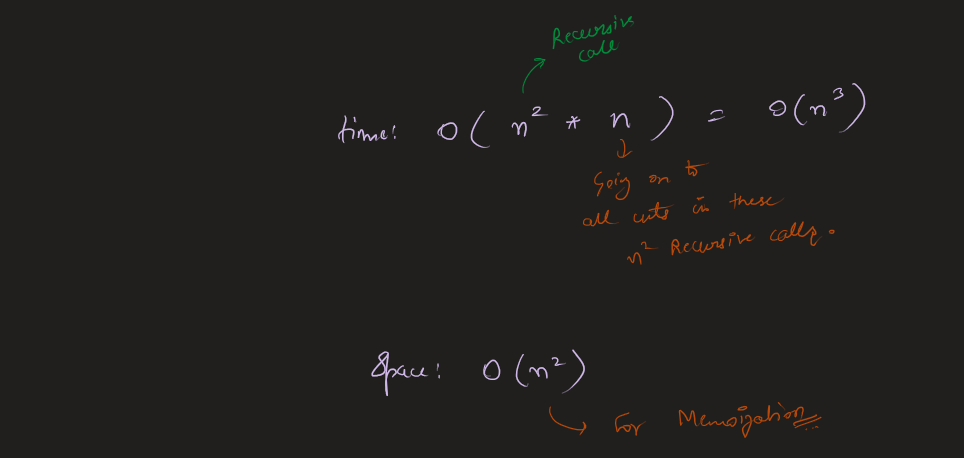 Recursive
call
time: O( n² * n ) = O(n³)
Going on to
all cuts in these
n² Recursive calls.
Space: O (n²)
For Memoization